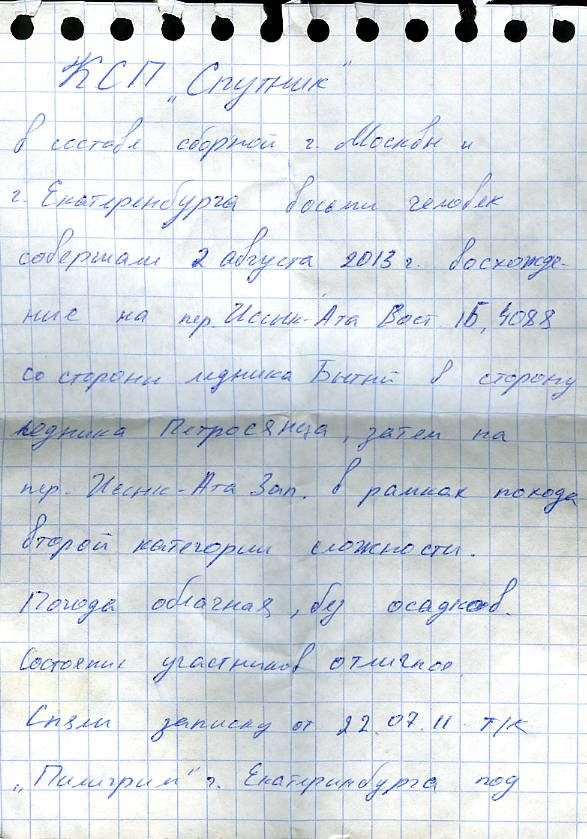 КСП „Спутник"
в составе сборной г. Москвы и
г. Екатеренбурга восьми человек
совершали 2 августа 2013 г. восхожде-
ние на пер. Иссык-Ата Вост 1Б, 4088
со стороны ледника Бытый в сторону
ледника Петросянца, затем на
пер. Иссык-Ата Зап. в рамках похода
второй категории сложности.
Погода облачная, без осадков.
Состояние участников отличное.
Сняли записку от 22.07.11 т/к
„Пилигрим" г. Екатеринбурга под